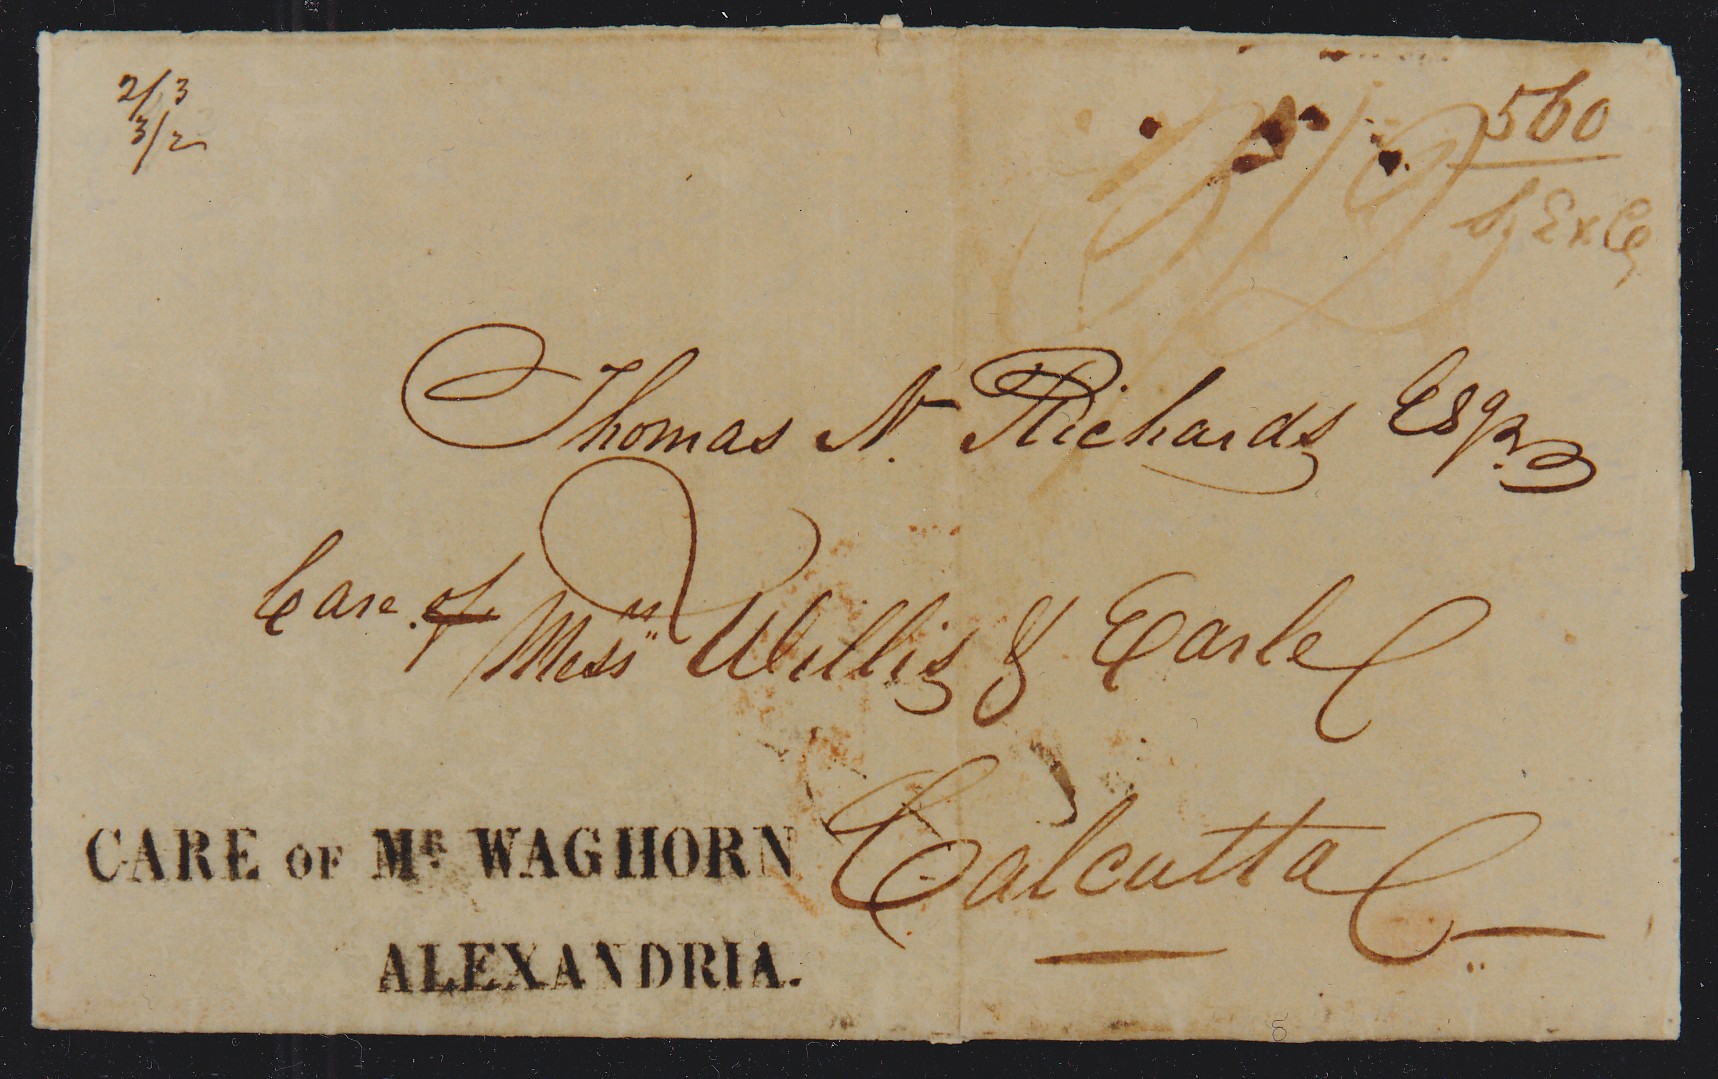 2/3
3/2
560
by Ex
Thomas N. Richards Esqr
Care of Messrs Willis & Earle
Calcutta
CARE OF MR WAGHORN
ALEXANDRIA.